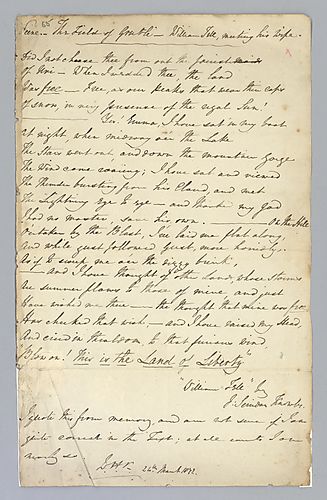 Scene. The Field of Grutli - William Tell, meeting his Wife.
Did I not choose thee from out the fairest maids
of Uri - When I wedded thee the land
Was free - Free, as our peaks that wear their caps
of snow, in very presence of the regal Sun!
Yes! Emma, I have sat in my boat
at night, when midway o'er the Lake
The Stars went out, and down the mountain Gorge
The Wind came roaring; I have sat and viewed
The Thunder bursting from his Cloud, and met
The Lightning eye to eye - and thank'd my God
I had no master, save his own - On the Hill
O'ertaken by the Blast, I've laid me flat along,
And while gust followed gust, more horridly.
As if to sweep me o'er the dizzy brink;
- And I have thought of other Lands, whose Storms
Are summer flaws to those of mine and just
Have wished me there - the thought that mine was free
Has checked that wish - and I have raised my Head
And cried in thraldom, to that furious wind
Blow on! This is the Land of Liberty"
"William Tell" by
J. Sheridan Knowles.
I quote this from memory, and am not sure if I am
quite correct in the Text; at all events I am
nearly so
24th March 1872.